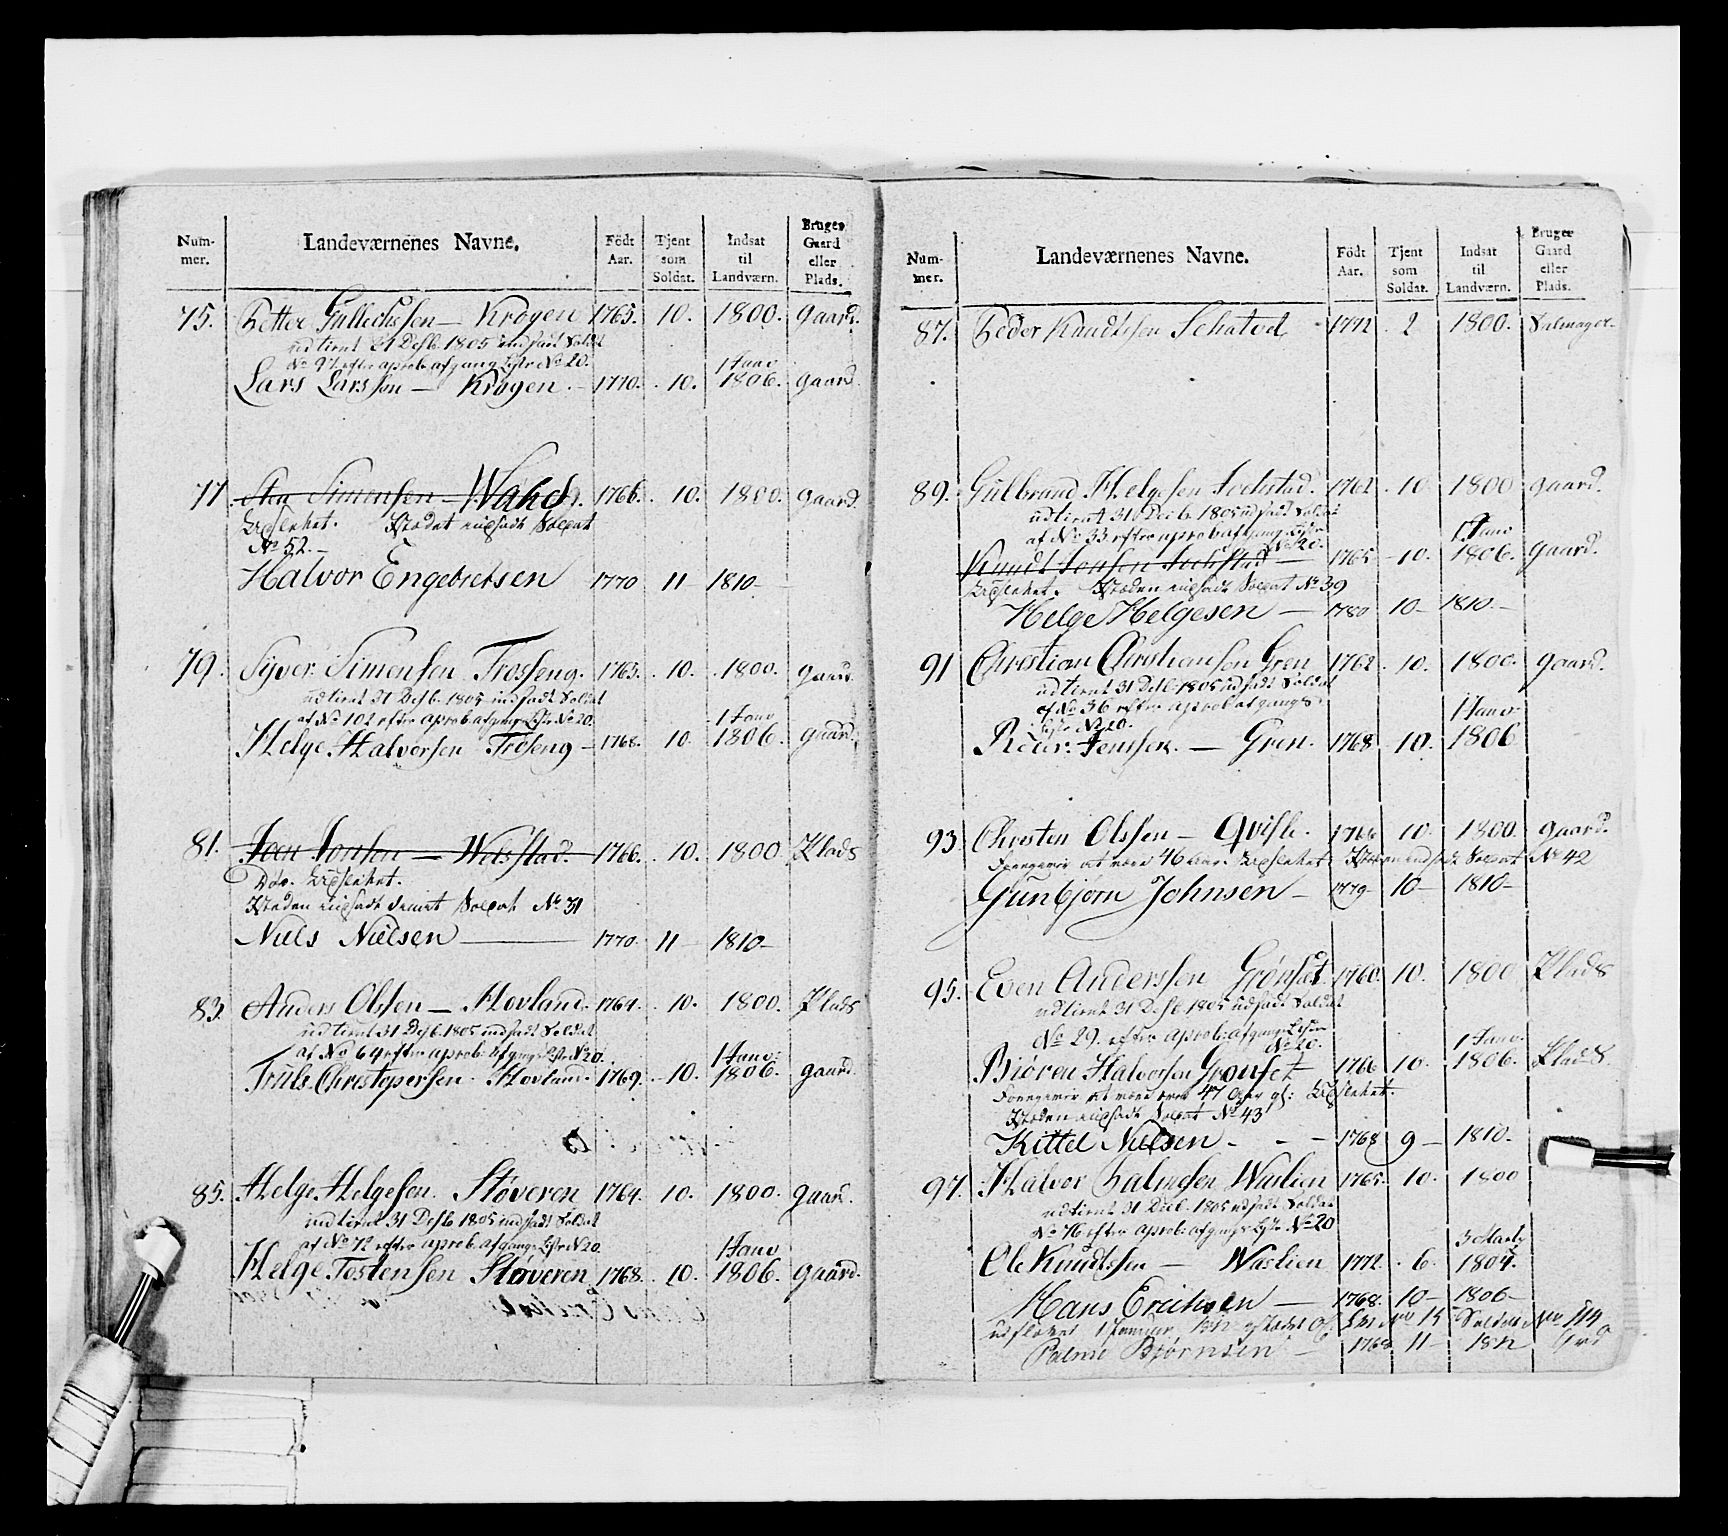 Num- Landeværnenes Navne. Födt Tjent Indsat Bruger
mer. Aar. som til Gaard
Soldat. Landværn. eller
Plads.
75. Petter Gullechssen — Krogen 1765. 10. 1800. gaard.
udtient 31 Desb. 1805 indsadt Soldat
No 97 efter aprob: afgangs Liste No 20.
1 Janv
Lars Larssen — Krogen. 1770. 10. 1806. gaard.
77 Simensen — 1766. 10. 1800. gaard
Stædet indsadt Soldat
No 52.
Halvor Engebretsen 1770 11 1810
79. Syver Simensen Trosseng. 1765. 10. 1800. gaard.
udtient 31 Desb. 1805 indsadt Soldat
af No 102 efter aprob: afgangs Liste No 20.
1 Janv
Helge Halvorsen Troseng — 1768. 10. 1806. gaard.
81. Joen Jonsen — 1766. 10. 1800 Plads
indsadt Soldat No 31
Niels Nielsen — 1770. 11 1810 —
83. Anders Olssen — Hovland. 1764. 10. 1800. Plads
udtient 31 Desb. 1805 indsadt Soldat
af No 64 efter aprob: afgangs Liste No 20.
1 Janv:
Truls Christopersen. Hovland. 1769. 10. 1806. gaard.
85. Helge Helgesen. Støveren 1764. 10. 1800. gaard.
udtient 31 Desb 1805 indsadt Soldat
af No 72 efter aprob: afgangs Liste No 20.
1 Janv
Helge Tostensen Støveren 1768. 10. 1806. gaard.
Num- Landeværnenes Navne. Födt Tjent Indsat Bruger
mer. Aar. som til Gaard
Soldat. Landværn. eller
Plads.
87. Peder Knudtssen 1772 2 1800.
89. Gulbrand Helgesen 1762 10 1800 gaard.
udtient 31 Desb. 1805 indsadt Soldat
af No 33 efter aprob: afgangs Liste
No 20.
1 Janv
Knudt Jonsen 1765 10. 1806. gaard.
Stæden indsadt Soldat No 39
Helge Helgesen — 1780 10 — 1810 —
91 Christian Christiansen Gren 1762. 10. 1800. gaard.
udtient 31 Desb. 1805 indsadt Soldat
af No 36 efter aprob: afgangs
Liste No 20.
1 Janv
Jensen. — Gren. 1768 10. 1806
93. Christen Olssen — Qvisle. 1766 10. 1800. gaard.
Foregiver at være 46 Aar. indsadt Soldat No 42
Gunbjørn Johnsen — 1779 10 — 1810 —
95. Even Anderssen Grønset 1760. 10. 1800 Plads
udtient 31 Desb. 1805 indsadt Soldat
No 29. efter aprob: afgangs Liste
No 20.
1 Janv
Biøren Halvorsen Grønset 1766 10. 1806. Plads.
Foregiver at være over 47
Stæden indsadt Soldat No 43
Kittel Nielsen — 1768 9 — 1810 —
97. Halvor Palmesen Waslien 1765. 10. 1800
udtient 31 Desb. 1805 indsadt Soldat
No 76 efter aprob: afgangs Liste No 20
Ole Knudtssen — Waslien 1772. 6. 1804.
Hans Erichsen — 1768. 10 — 1806 —
1 Januar 1812 No 15 Soldat No 114
Palme Bjørnsen — 1768 11 — 1812